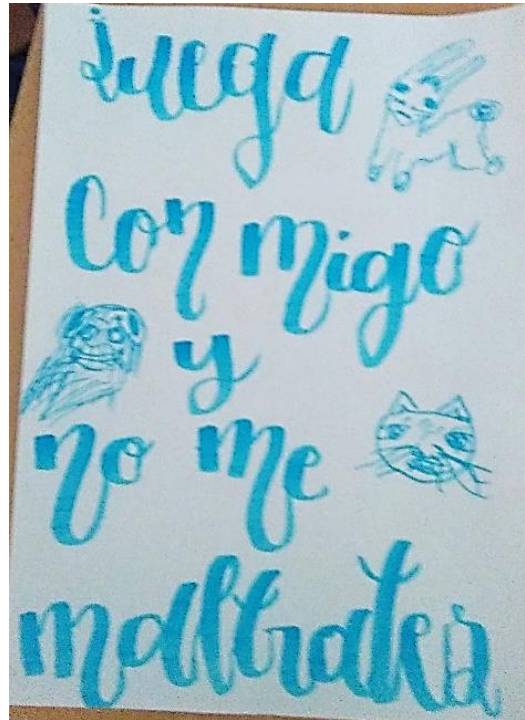 juega
con migo
y
no me
maltrates